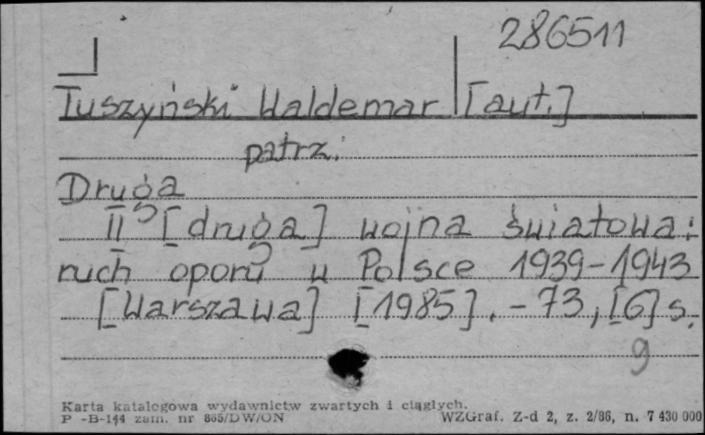 286511
Tuszyński Waldemar [aut.]
patrz:
Druga
II [druga] wojna światowa:
ruch oporu w Polsce 1939-1943
[Warszawa] [1985]. - 73, [6] s.
9
Karta katalogowa wydawnictw zwartych i ciągłych.
P-B-144 zam. nr 865/DW/ON WZGraf. Z-d 2, z. 2/86, n. 7 430 000